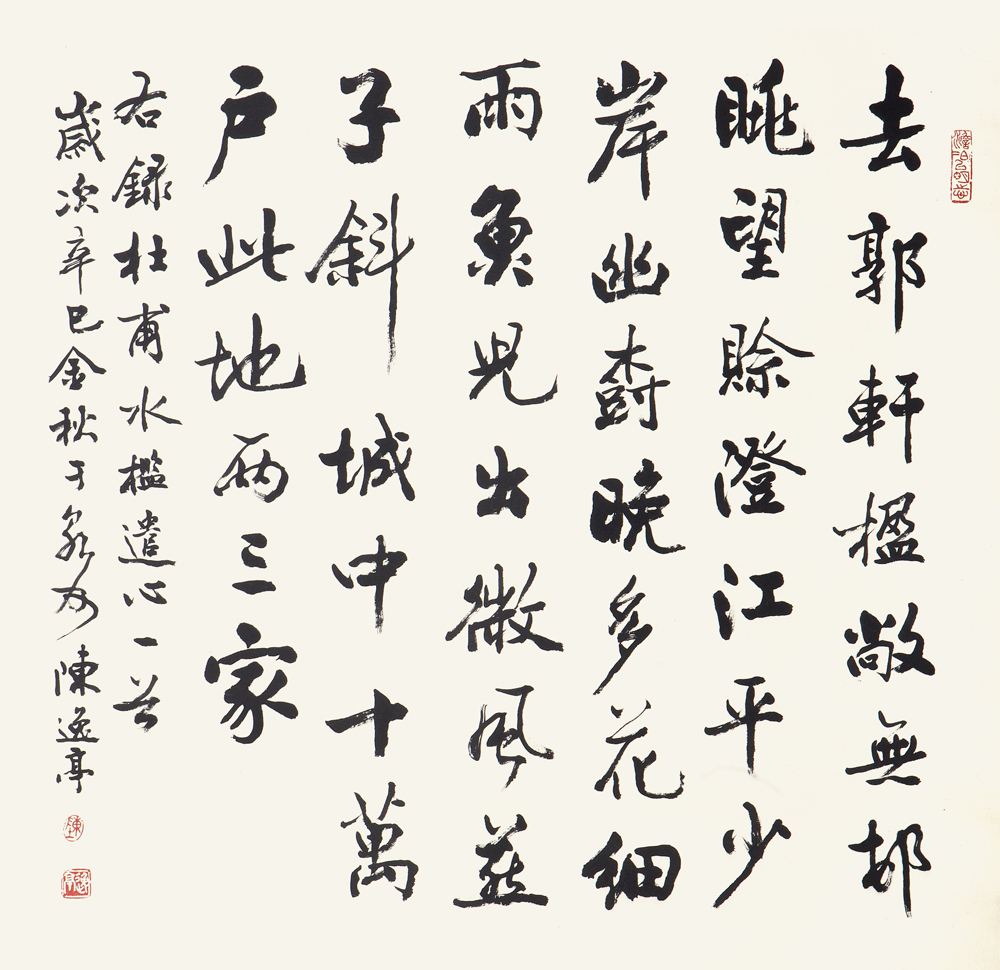 去郭軒楹敞無邨
眺望賒澄江平少
岸幽樹晚多花細
雨魚兒出微風燕
子斜城中十萬
户此地兩三家
右録杜甫水檻遣心一首
歲次辛巳金秋于泉州陳逸亭